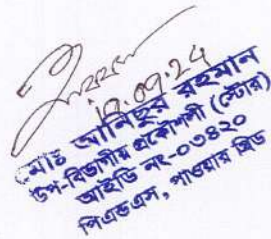 ১৭.০৭.২৪
মোঃ আনিছুর রহমান
উপ-বিভাগীয় প্রকৌশলী (স্টোর)
আইডি নং-০৩৪২০
পিএন্ডএস, পাওয়ার গ্রিড